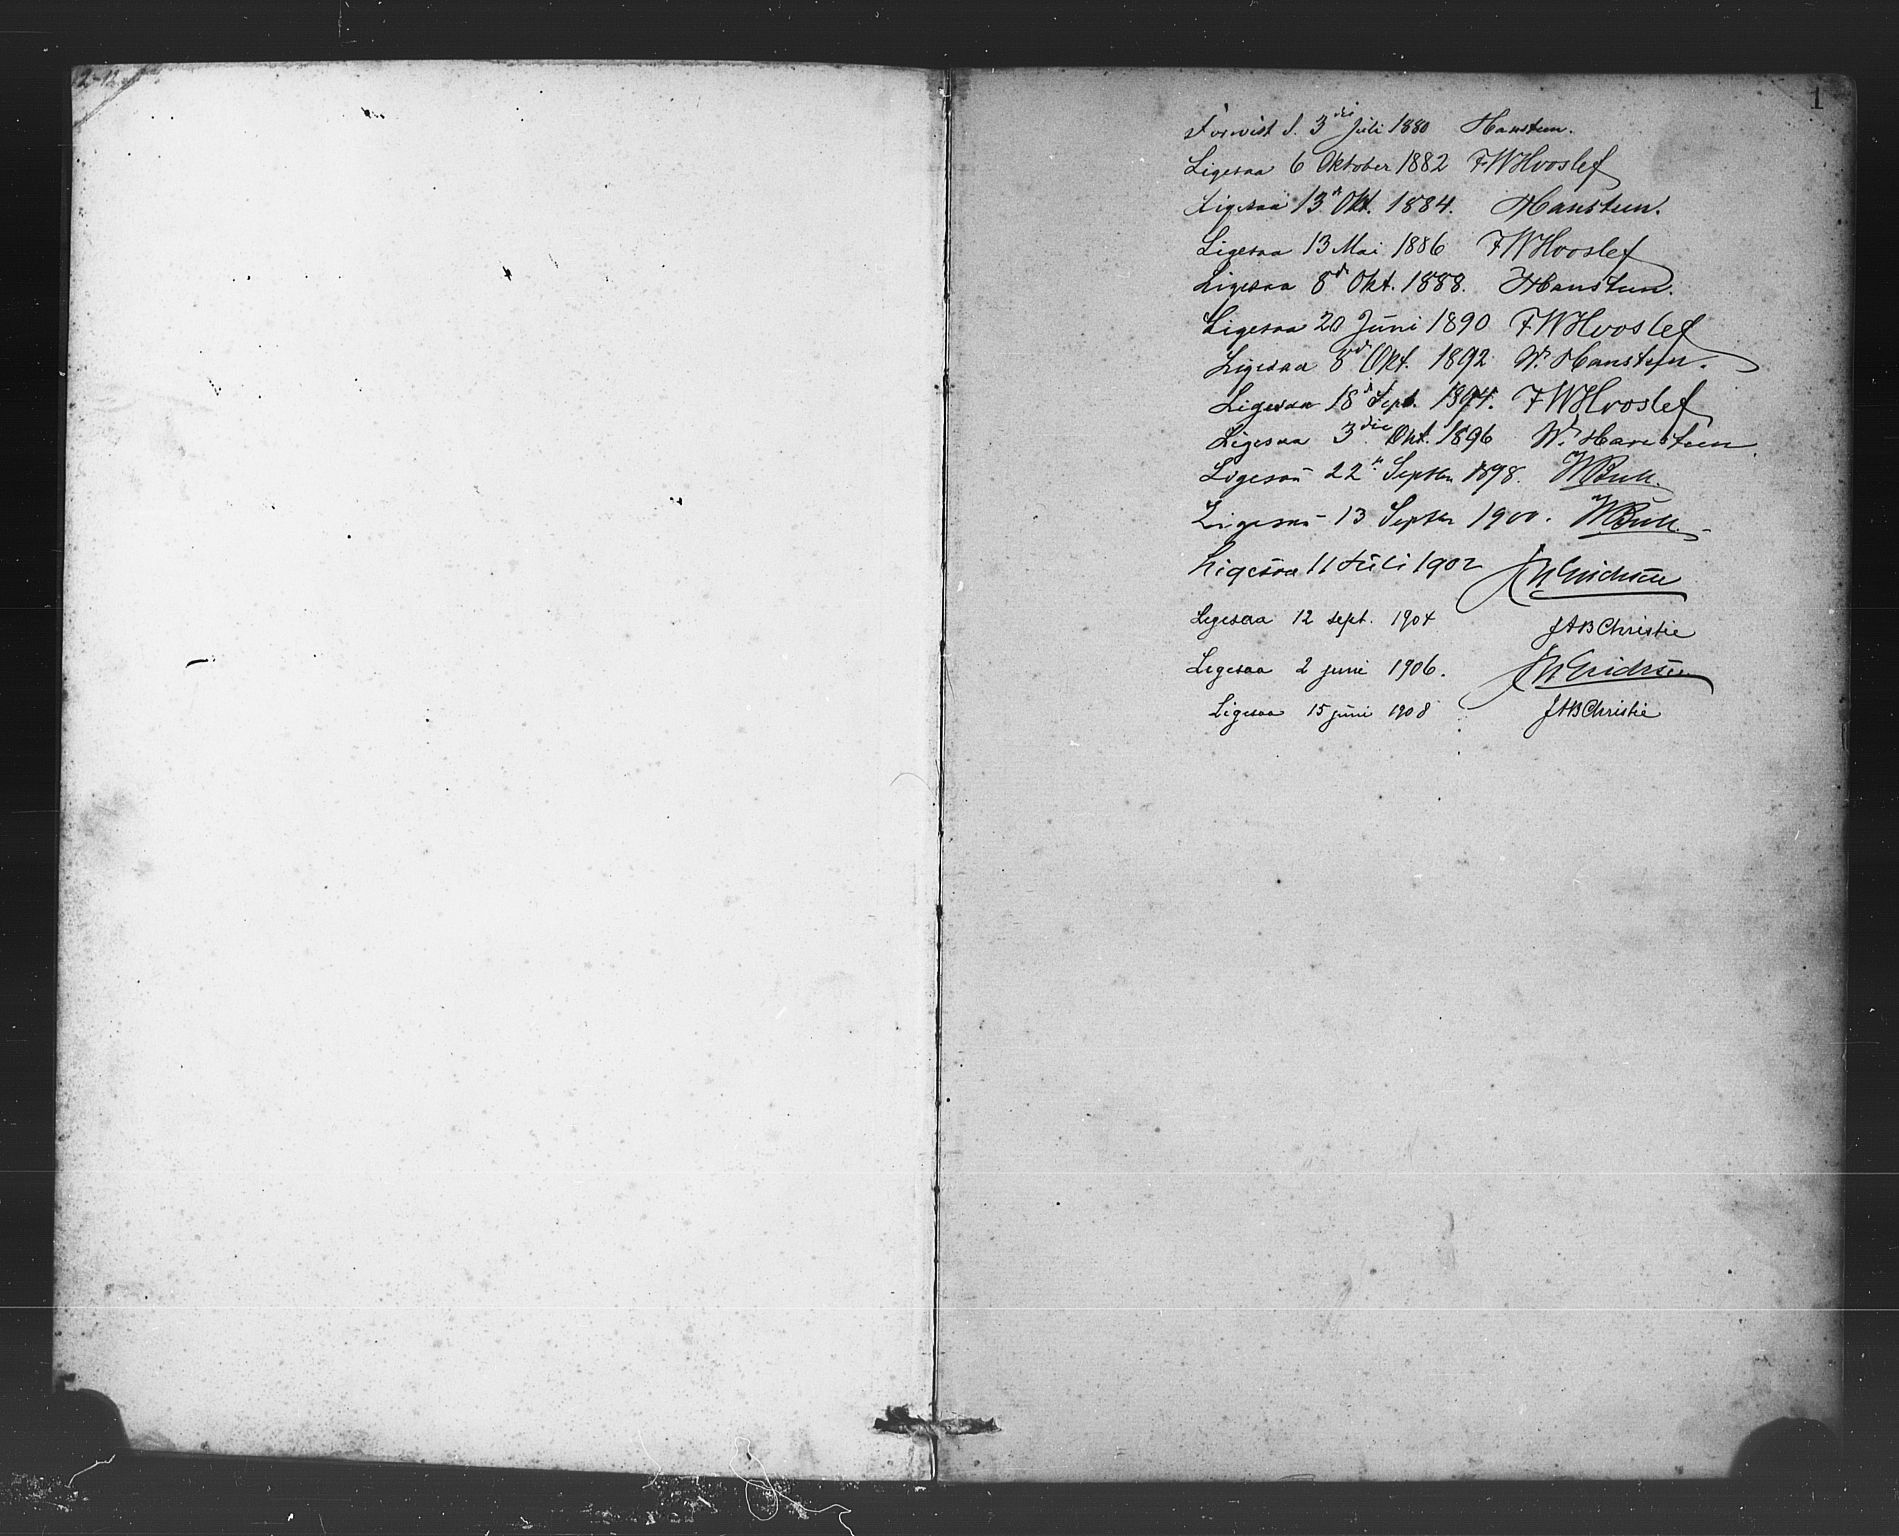 2-12
1
Forevist d. 3die Juli 1880 Hansteen.
Ligesaa 6 Oktober 1882 FWHvoslef
Ligesaa 13d Okt. 1884. Hansteen.
Ligesaa 13 Mai 1886 FWHvoslef
Ligesaa 8d Okt. 1888. Hansteen.
Ligesaa 20 Juni 1890 FWHvoslef
Ligesaa 8d Okt. 1892 W. Hansteen.
Ligesaa 18d Sept. 1894. FWHvoslef
Ligesaa 3die Okt. 1896 W. Hansteen.
Ligesaa 22 Septbr 1898. WBull.
Ligesaa 13 Septbr 1900. WBull.
Ligesaa 11 Juli 1902 Erichsen
Ligesaa 12 sept. 1904 JABChristie
Ligesaa 2 juni 1906. Erichsen
Ligesaa 15 juni 1908 JABChristie